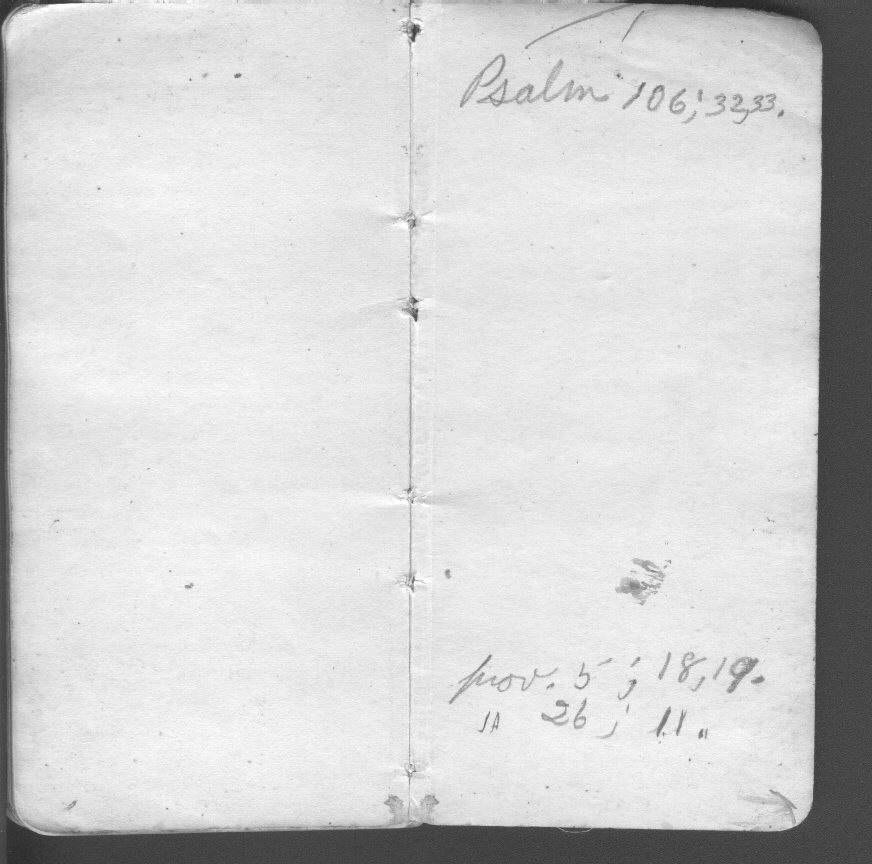 Psalm 106; 32,33.
prov. 5; 18,19.
" 26; 11.